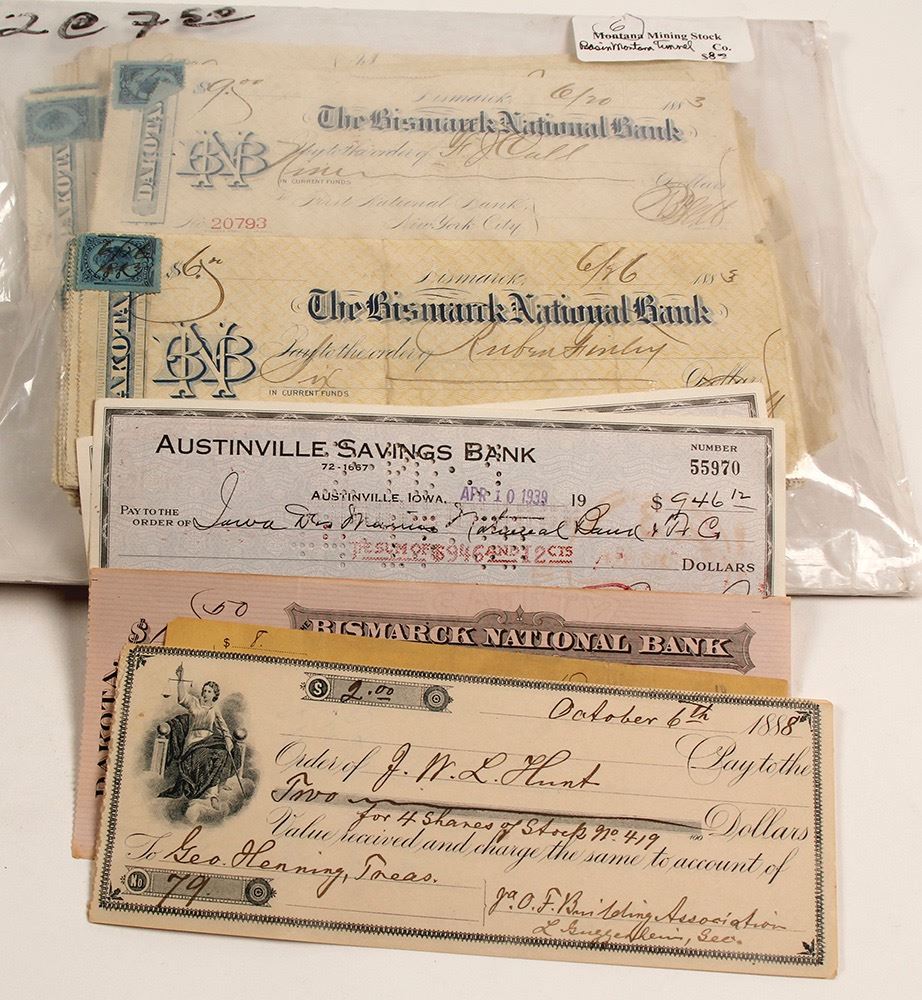 2 @ 7 50
(6)
Montana Mining Stock
Basin Montana Tunnel Co.
$8
DAKOTA
DAKOTA
$9.00
Bismarck, 6/20 1883
The Bismarck National Bank
Pay to the order of F J Call
Nine Dollars
IN CURRENT FUNDS
To First National Bank,
New York City
No. 20793
BNB
$6.00
Bismarck, 6/26 1883
The Bismarck National Bank
Pay to the order of Ruben Finley
Six Dollars
IN CURRENT FUNDS
BNB
AKOTA
AUSTINVILLE SAVINGS BANK
72-1667
NUMBER
55970
AUSTINVILLE, IOWA, APR 10 1939 19 $946 12
PAY TO THE
ORDER OF Iowa Des Moines National Bank & T. C.
THE SUM OF $946 AND 12 CTS
DOLLARS
50
$
BISMARCK NATIONAL BANK
DAKOTA.
$ 8.
$ 2.00 C
October 6th 1888
Pay to the
Order of J. W. L. Hunt
Two Dollars
for 4 Shares of Stock No 419 100
Value received and charge the same to account of
To Geo. Henning, Treas.
No 79 C
O. F. Building Association
L Guggenheim, Sec.